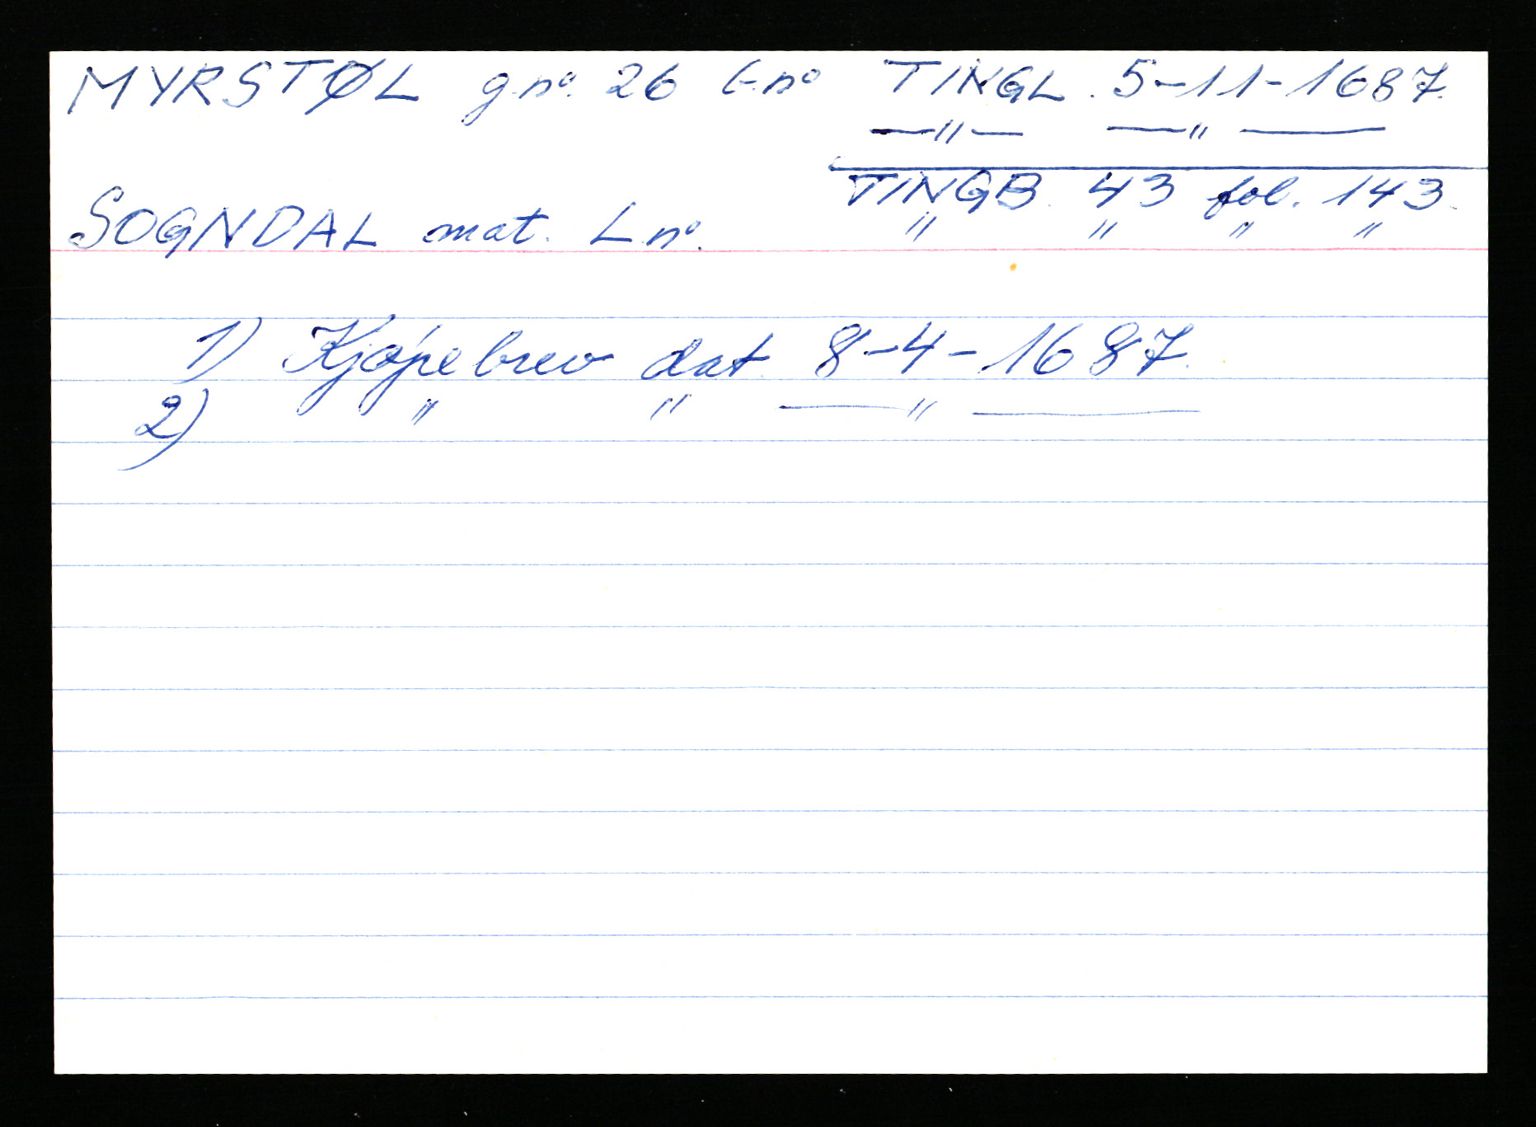 MYRSTØL g.no. 26 b.no TINGL. 5-11-1687.
—"— —"—
TINGB. 43 fol. 143.
SOGNDAL mat. L.no. " " " "
1) Kjøpebrev dat. 8-4-1687.
2) " " —"—